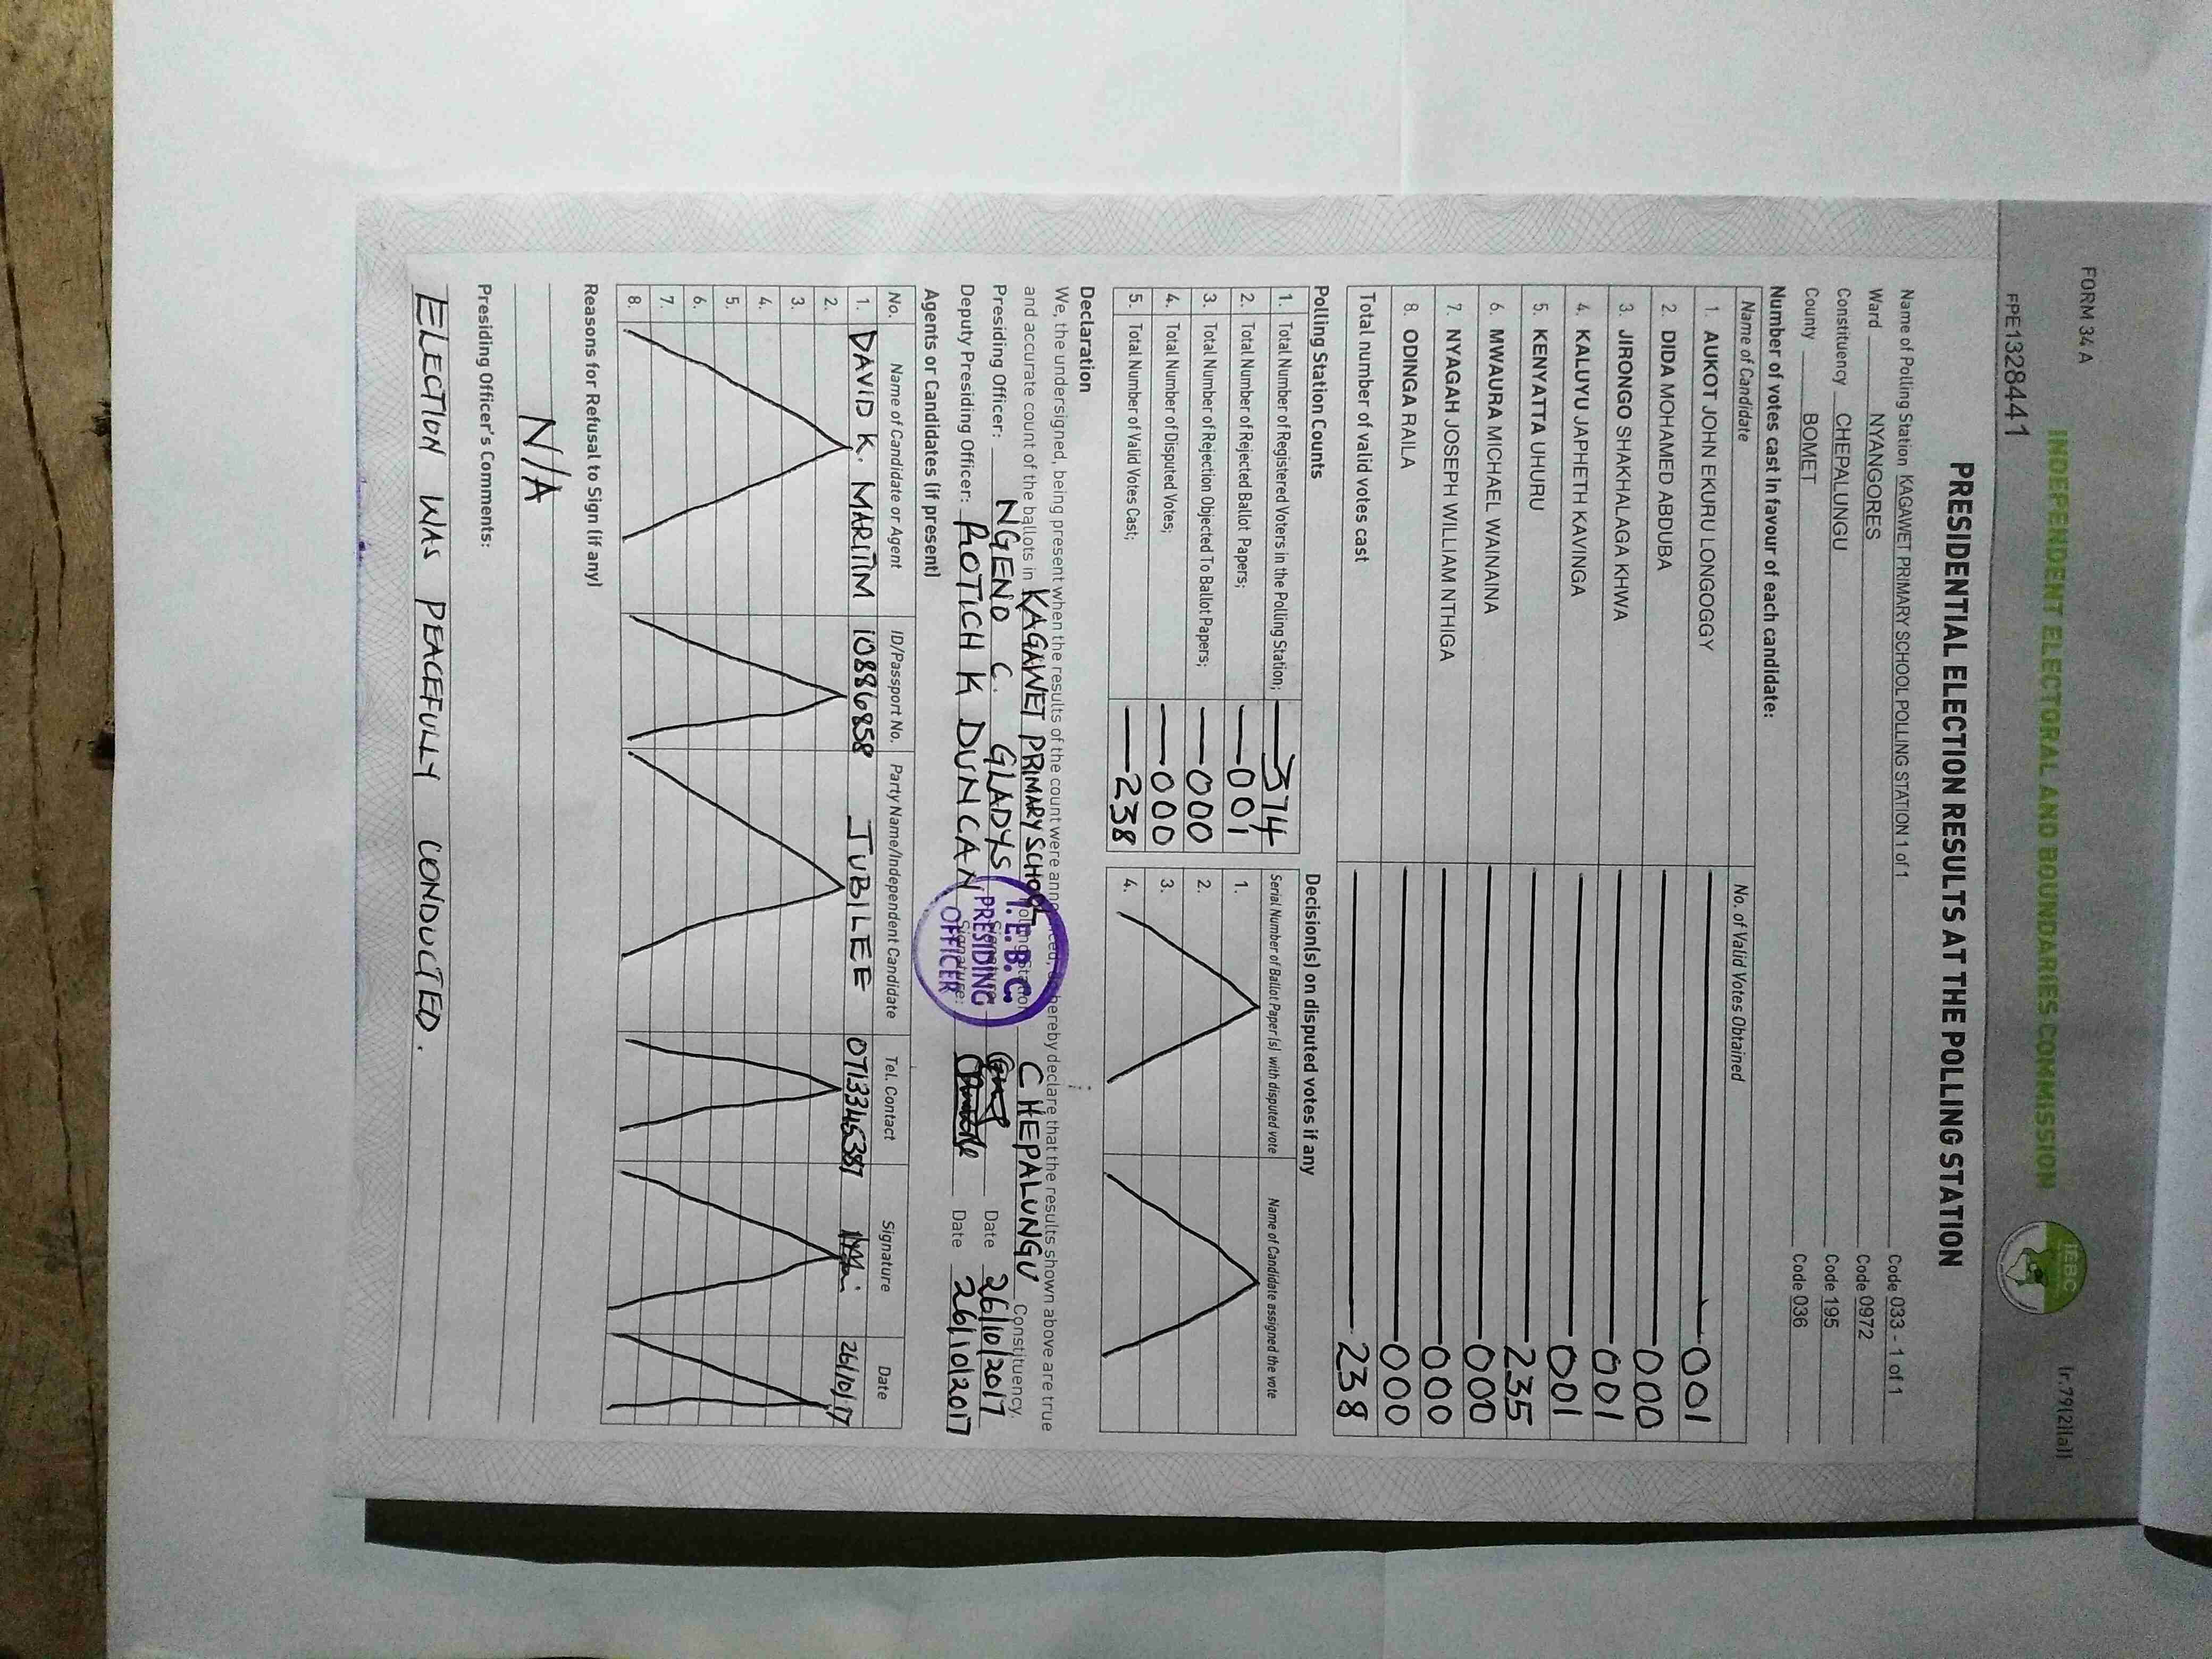 FORM 34 A
(r.79(2)(a))
INDEPENDENT ELECTORAL AND BOUNDARIES COMMISSION
IEBC
FPE1328441
PRESIDENTIAL ELECTION RESULTS AT THE POLLING STATION
Name of Polling Station KAGAWET PRIMARY SCHOOL POLLING STATION 1 of 1 Code 033 - 1 of 1
Ward NYANGORES Code 0972
Constituency CHEPALUNGU Code 195
County BOMET Code 036
Number of votes cast in favour of each candidate:
Name of Candidate No. of Valid Votes Obtained
1. AUKOT JOHN EKURU LONGOGGY 001
2. DIDA MOHAMED ABDUBA 000
3. JIRONGO SHAKHALAGA KHWA 001
4. KALUYU JAPHETH KAVINGA 001
5. KENYATTA UHURU 235
6. MWAURA MICHAEL WAINAINA 000
7. NYAGAH JOSEPH WILLIAM NTHIGA 000
8. ODINGA RAILA 000
Total number of valid votes cast 238
Polling Station Counts
1. Total Number of Registered Voters in the Polling Station; 374
2. Total Number of Rejected Ballot Papers; 001
3. Total Number of Rejection Objected To Ballot Papers; 000
4. Total Number of Disputed Votes; 000
5. Total Number of Valid Votes Cast; 238
Decision(s) on disputed votes if any
Serial Number of Ballot Paper(s) with disputed vote Name of Candidate assigned the vote
1.
2.
3.
4.
Declaration
We, the undersigned, being present when the results of the count were announced, do hereby declare that the results shown above are true
and accurate count of the ballots in KAGAWET PRIMARY SCHOOL Polling Station CHEPALUNGU Constituency.
Presiding Officer: NGENO C. GLADYS Signature: Date 26/10/2017
Deputy Presiding Officer: ROTICH K DUNCAN Signature: Date 26/10/2017
I.E.B.C.
PRESIDING
OFFICER
Agents or Candidates (if present)
No. Name of Candidate or Agent ID/Passport No. Party Name/Independent Candidate Tel. Contact Signature Date
1. DAVID K. MARITIM 10886858 JUBILEE 26/10/17
2.
3.
4.
5.
6.
7.
8.
Reasons for Refusal to Sign (if any)
N/A
Presiding Officer's Comments:
ELECTION WAS PEACEFULLY CONDUCTED.